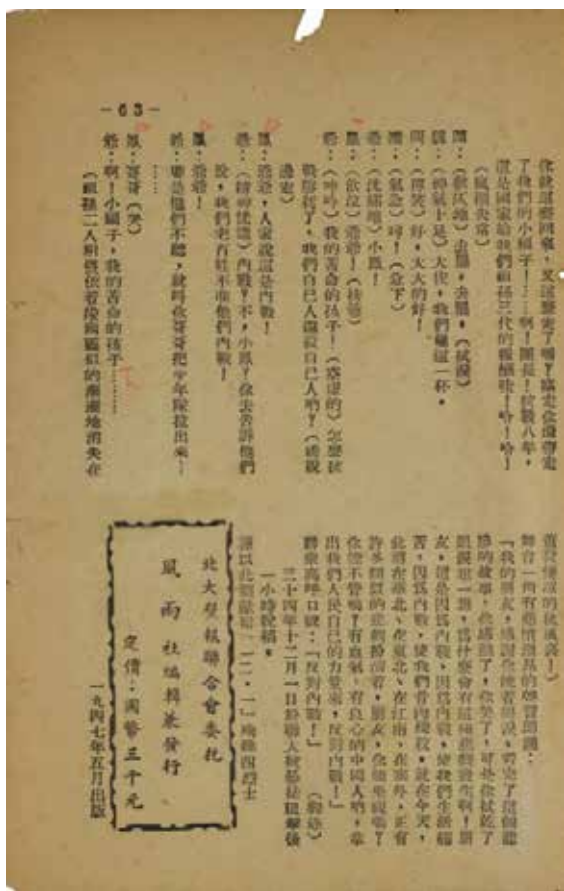 -63-
你就這麼回來，又這麼走了嗎？臨走你還帶走
了我們的小國子！……啊！團長！抗戰八年，
這是國家給我們祖孫三代的報酬啦！哈！哈！
（瘋癲失常）
團：（ 地）去罷，去罷，（拭淚）
（神氣十足）大 ，我們 這一杯，
（獰笑）好，大大的好！
團：（氣急）哼！（急下）
爺：（沈痛地）小鳳！
鳳：（飲泣）爺爺！（扶爺）
爺：（呻吟）我的苦命的孩子！（ 的）怎麼抗
戰勝利了，我們自己人還殺自己人啊？（
過去）
鳳：爺爺，人家說這是內戰！
爺：（精神恍惚）內戰？不，小鳳！你去告訴他們
說，我們老百姓不准他們內戰！
鳳：爺爺！
爺：要是他們不聽，就叫你哥哥把少年隊拉出來…
……
鳳：哥哥（哭）
爺：啊！小國子，我的苦命的孩子………
（祖孫二人相 依着 似的漸漸地消失在
舞台一角有悲憤激昂的聲音朗誦：
「我的朋友，感謝你 着眼淚，看完了這個悲
慘的故事，你感動了，你哭了，可是你拭乾了
眼淚想一想，為什麼會有這種悲劇發生啊！朋
友，這是因為內戰，因為內戰，使我們生活痛
苦，因為內戰，使我們骨肉 ，就在今天，
此刻在華北、在東北、在江南、在塞外，正有
許多類似的悲劇扮演着，朋友，你能坐視嗎？
你能不管嗎？有血氣、有良心的中國人喲，拿
出我們人民自己的力量來，反對內戰！」
群眾高呼口號：「反對內戰！」 （ ）
三十四年十二月一日於聯大 後
一小時脫稿。
謹以此劇獻給「一二、一」殉難四烈士
北大壁報聯合會委托
風雨社編輯兼發行
定價：國幣三千元
一九四七年五月出版